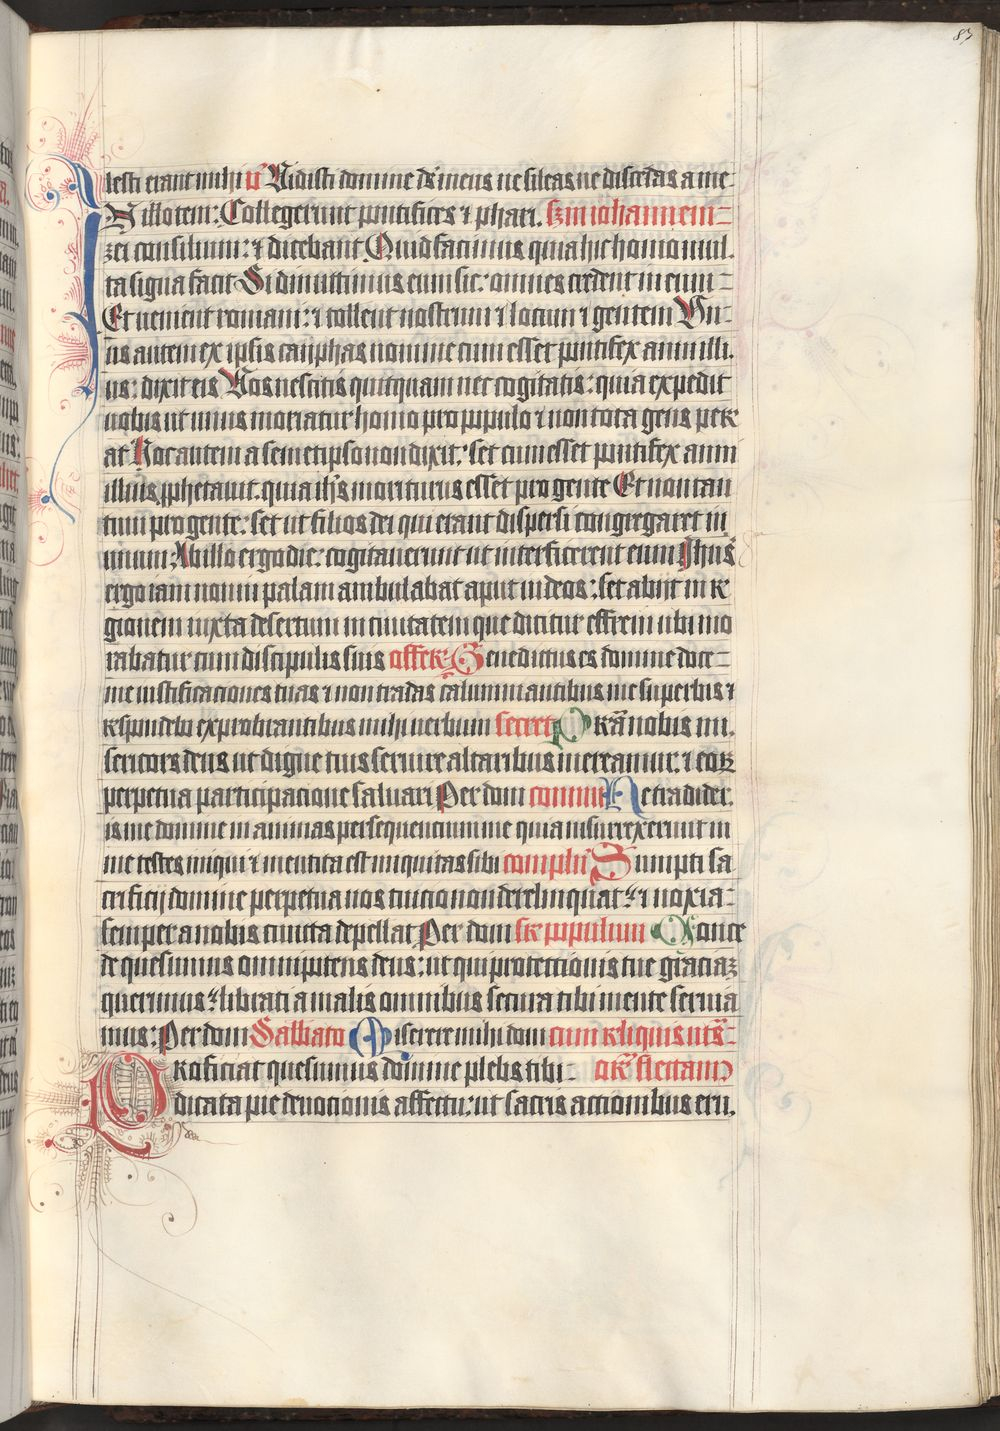 83
lesti erant mihi v̄ Uidisti domine ds̄ meus ne sileas ne discedas a me
In illo tem: Collegerunt pontifices ⁊ phari. sm̄ iohannem
zei consilium: ⁊ dicebant Quid facimus quia hic homo mul
ta signa facit Si dimittimus eum sic: omnes credent in eum
Et uenient romani: ⁊ tollent nostrum ⁊ locum ⁊ gentem Un
us autem ex ipsis cayphas nomine cum esset pontifex anni illi
us: dixit eis Uos nescitis quitquam nec cogitatis: quia expedit
nobis ut unus moriatur homo pro populo ⁊ non tota gens per
at Hoc autem a semetipso non dixit: set cum esset pontifex anni
illius ꝓphetauit. quia ih̄s moriturus esset pro gente Et non tan
tum pro gente: set ut filios dei qui erant dispersi congregaret in
unum: Ab illo ergo die: cogitauerunt ut interficerent eum Jhūs
ergo iam non in palam ambulabat aput iudeos: set abijt in re
gionem iuxta desertum in ciuitatem que dicitur effrem ubi mo
rabatur cum discipulis suis offer Benedictus es domine doce
me iustificaciones tuas ⁊ non tradas calumniantibus me superbis ⁊
respondebo exprobrantibus mihi uerbum secret Pr̄a nobis mi
sericors deus ut digne tuis seruire altaribus mereamur: ⁊ eoꝝ
perpetua participacione saluari Per dom commu Ne tradider
is me domine in animas persequencium me quia insurrexerunt in
me testes iniqui ⁊ mentita est iniquitas sibi complū Sumpti sa
crificij domine perpetua nos tuicio non derelinquat: ⁊ noxia
semper a nobis cuncta depellat Per dom sr̄ populum Conce
de quesumus omnipotens deus: ut qui protectionis tue gr̄aciaꝫ
querimus: liberati a malis omnibus secura tibi mente seruia
mus: Per dom Sabbato Miserere mihi dom cum reliquis utš
Proficiat quesumus domine plebs tibi or̄ flectam̄
dicata pie deuocionis affectu: ut sacris actionibus eru